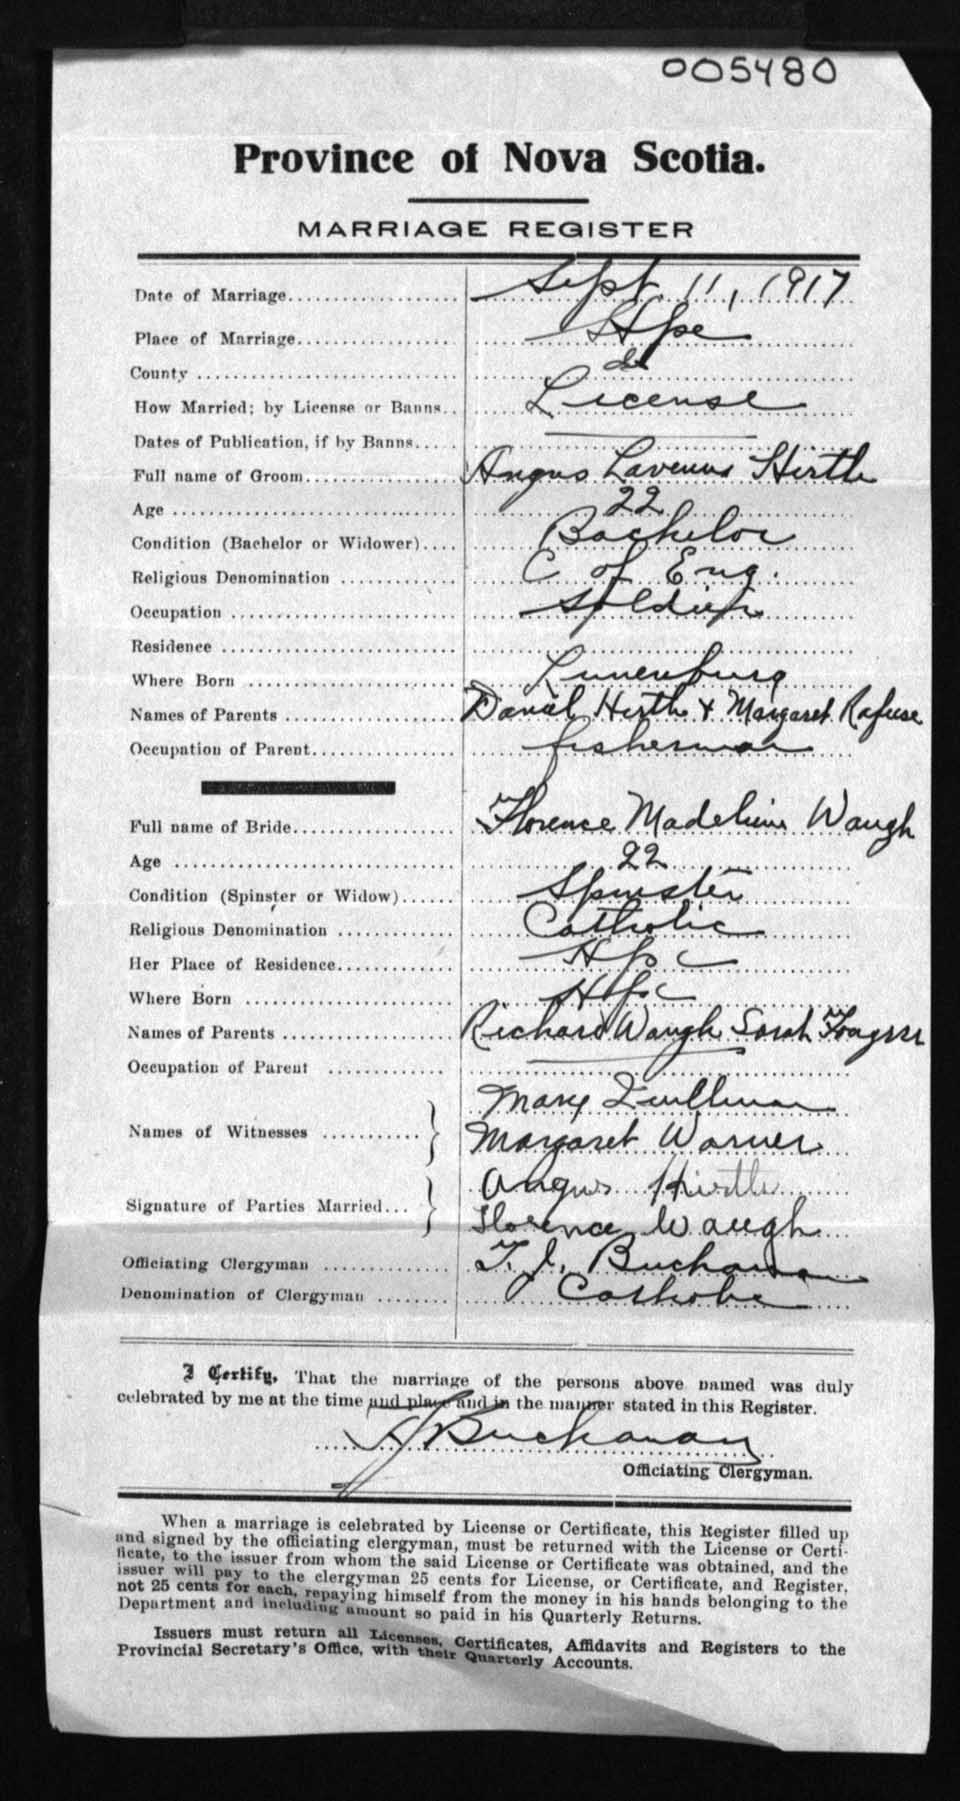 005480
Province of Nova Scotia.
MARRIAGE REGISTER
Date of Marriage Sept. 11, 1917
Place of Marriage Hfx
County do
How Married; by License or Banns License
Dates of Publication, if by Banns
Full name of Groom Angus Hirtle
Age 22
Condition (Bachelor or Widower) Bachelor
Religious Denomination C of Eng.
Occupation Soldier
Residence
Where Born Lunenburg
Names of Parents Daniel Hirtle & Margaret Rafuse
Occupation of Parent fisherman
Full name of Bride Florence Madeline Waugh
Age 22
Condition (Spinster or Widow) Spinster
Religious Denomination Catholic
Her Place of Residence Hfx
Where Born Hfx
Names of Parents Richard Waugh Sarah
Occupation of Parent
Names of Witnesses Mary
Margaret Warner
Signature of Parties Married Angus Hirtle
Florence Waugh
Officiating Clergyman T. J. Buchanan
Denomination of Clergyman Catholic
I Certify, That the marriage of the persons above named was duly
celebrated by me at the time and place and in the manner stated in this Register.
Buchanan
Officiating Clergyman.
When a marriage is celebrated by License or Certificate, this Register filled up
and signed by the officiating clergyman, must be returned with the License or Certi-
ficate, to the issuer from whom the said License or Certificate was obtained, and the
issuer will pay to the clergyman 25 cents for License, or Certificate, and Register,
not 25 cents for each, repaying himself from the money in his hands belonging to the
Department and including amount so paid in his Quarterly Returns.
Issuers must return all Licenses, Certificates, Affidavits and Registers to the
Provincial Secretary's Office, with their Quarterly Accounts.